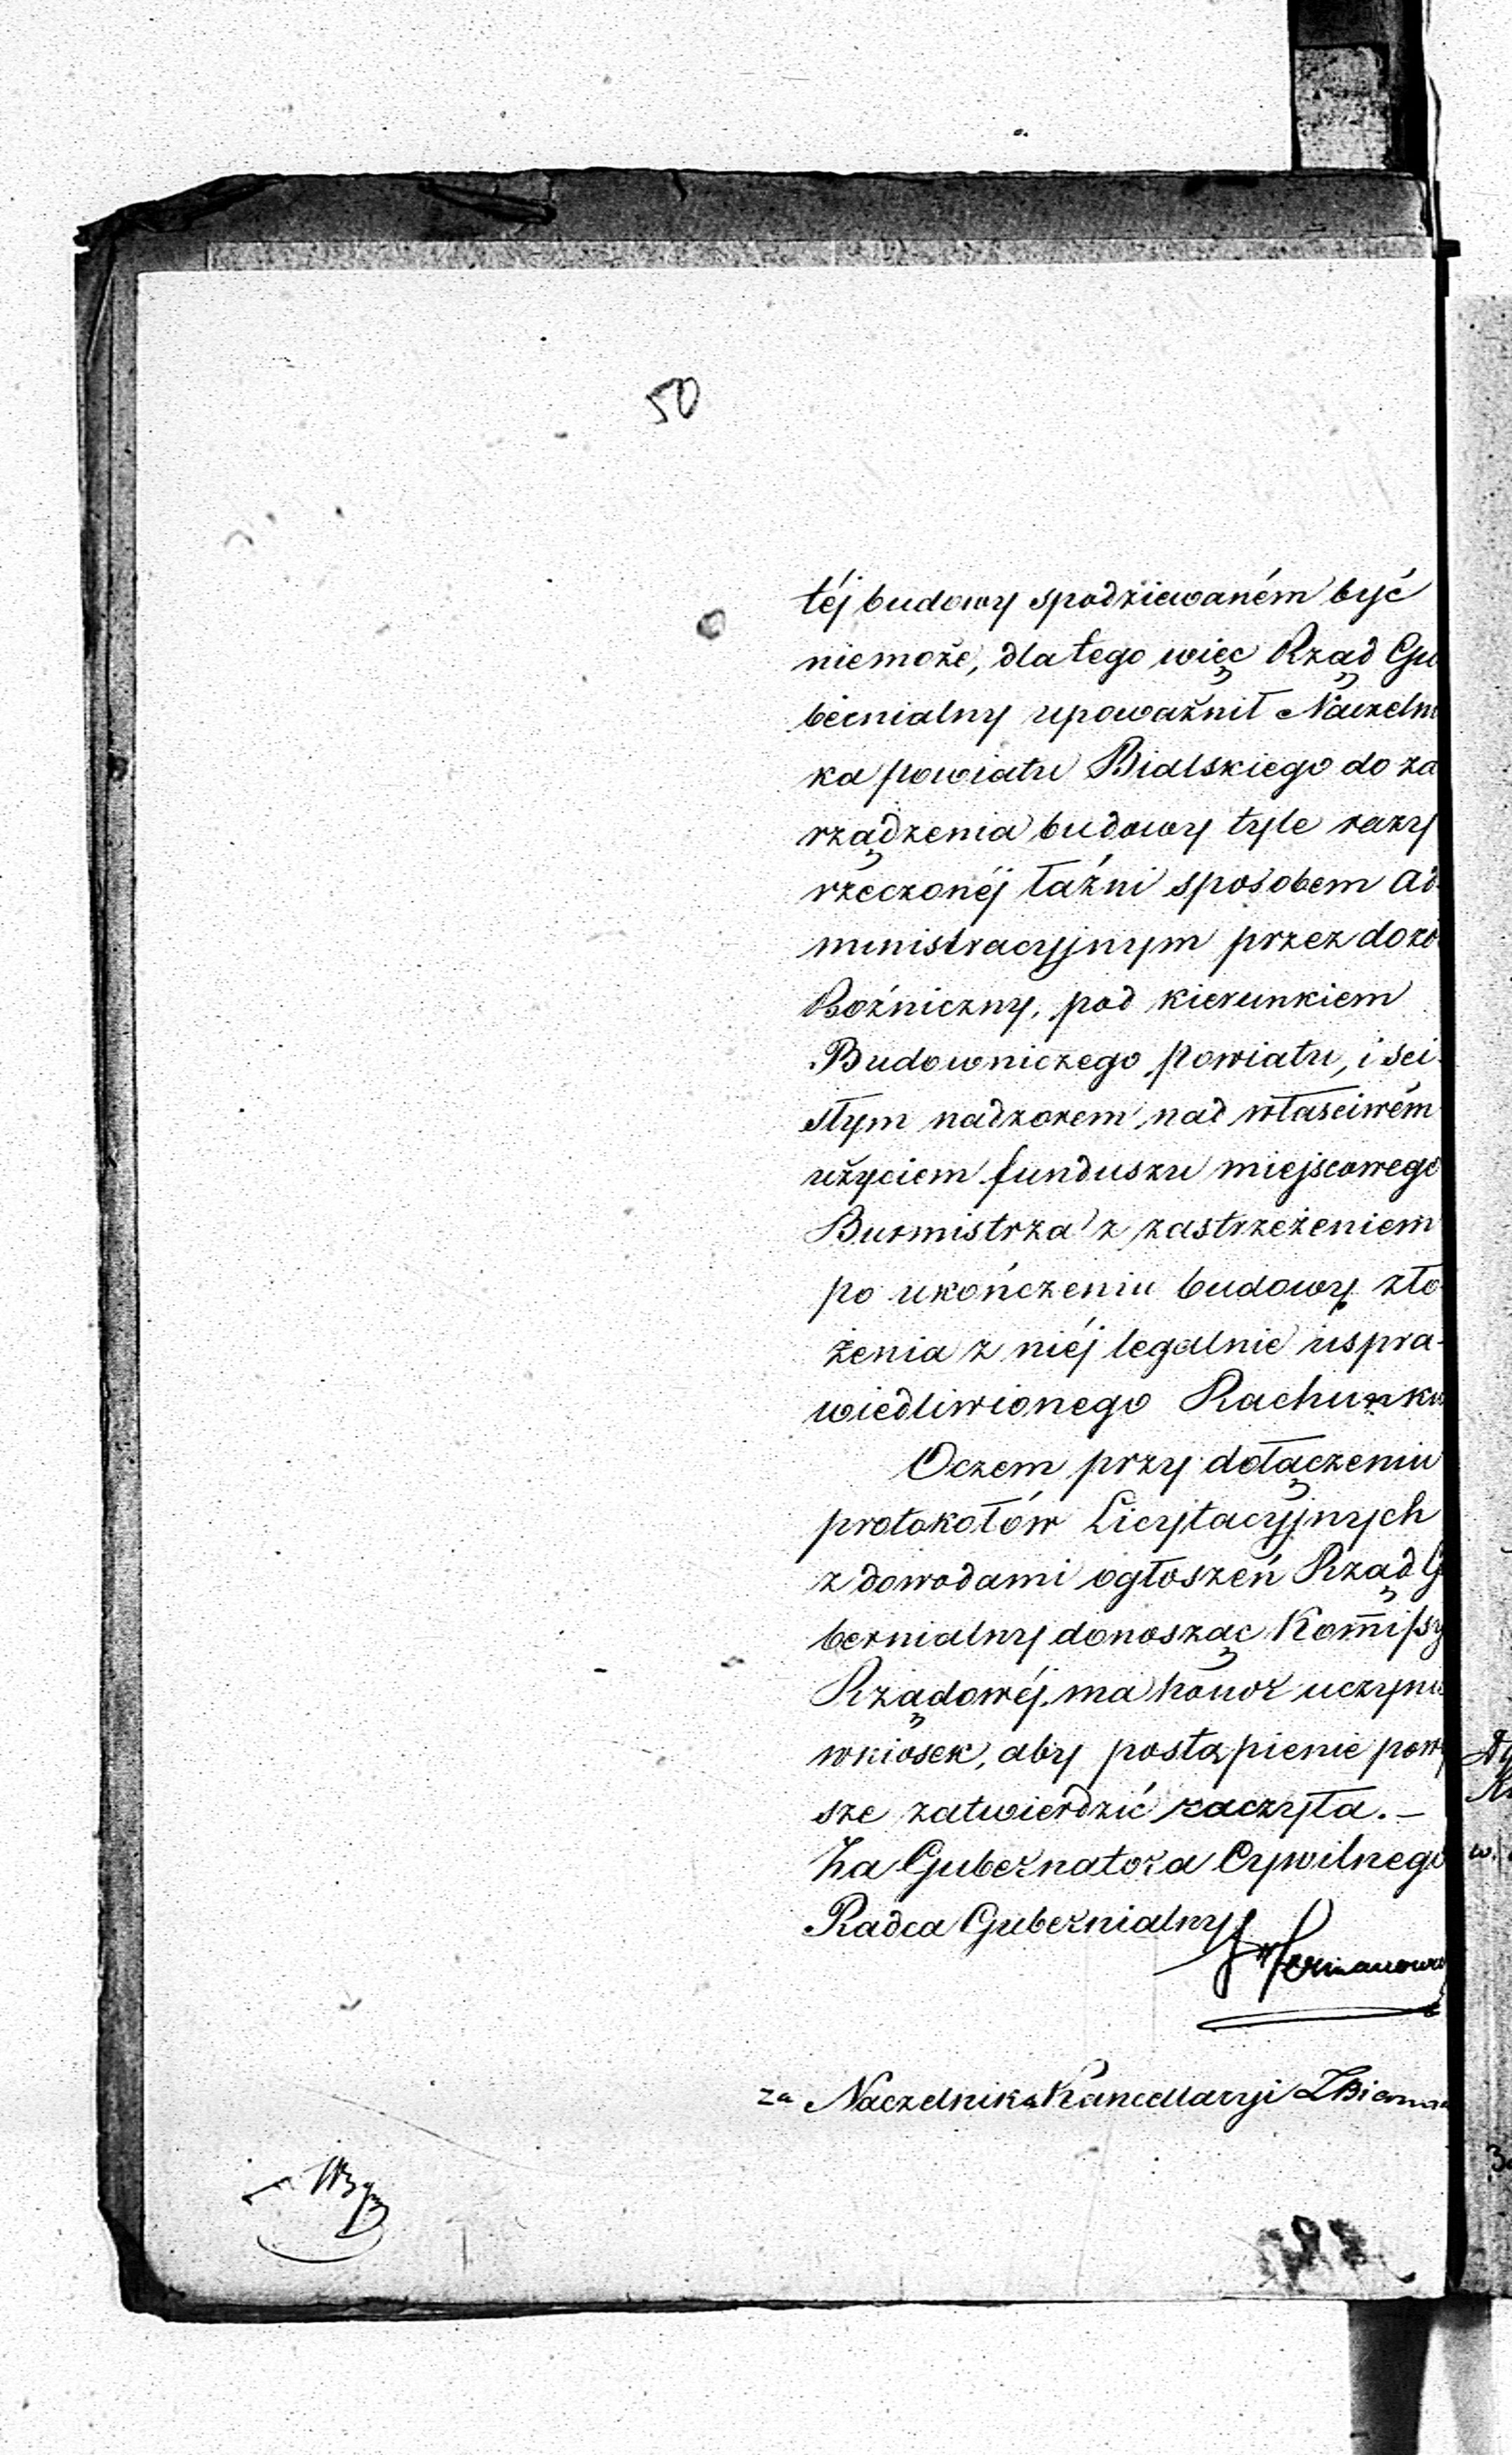 50
téj budowy spodziewaném być
niemoże, dla tego więc Rząd Gu
bernialny upoważnił Naczelni
ka powiatu Bialskiego do za
rządzenia budowy tyle razy
rzeczonéj łaźni sposobem ad
ministracyjnym przez dozó
Boźniczny, pod kierunkiem
Budowniczego Powiatu, i sci
słym nadzorem nad właściwém
użyciem funduszu miejscowego
Burmistrza z zastrzeżeniem
po ukończeniu budowy zło
żenia z niéj legalnie uspra-
wiedliwionego Rachunku
Oczem przy dołączeniu
protokołów Licytacyjnych
z dowodami ogłoszeń Rząd G
bernialny donosząc Kom̄issy
Rządowéj, ma honor uczynić
wniosek, aby postąpienie powy
sze zatwierdzić raczyła. —
Za Gubernatora Cywilnego
Radca Gubernialny
za Naczelnika Kancellaryi